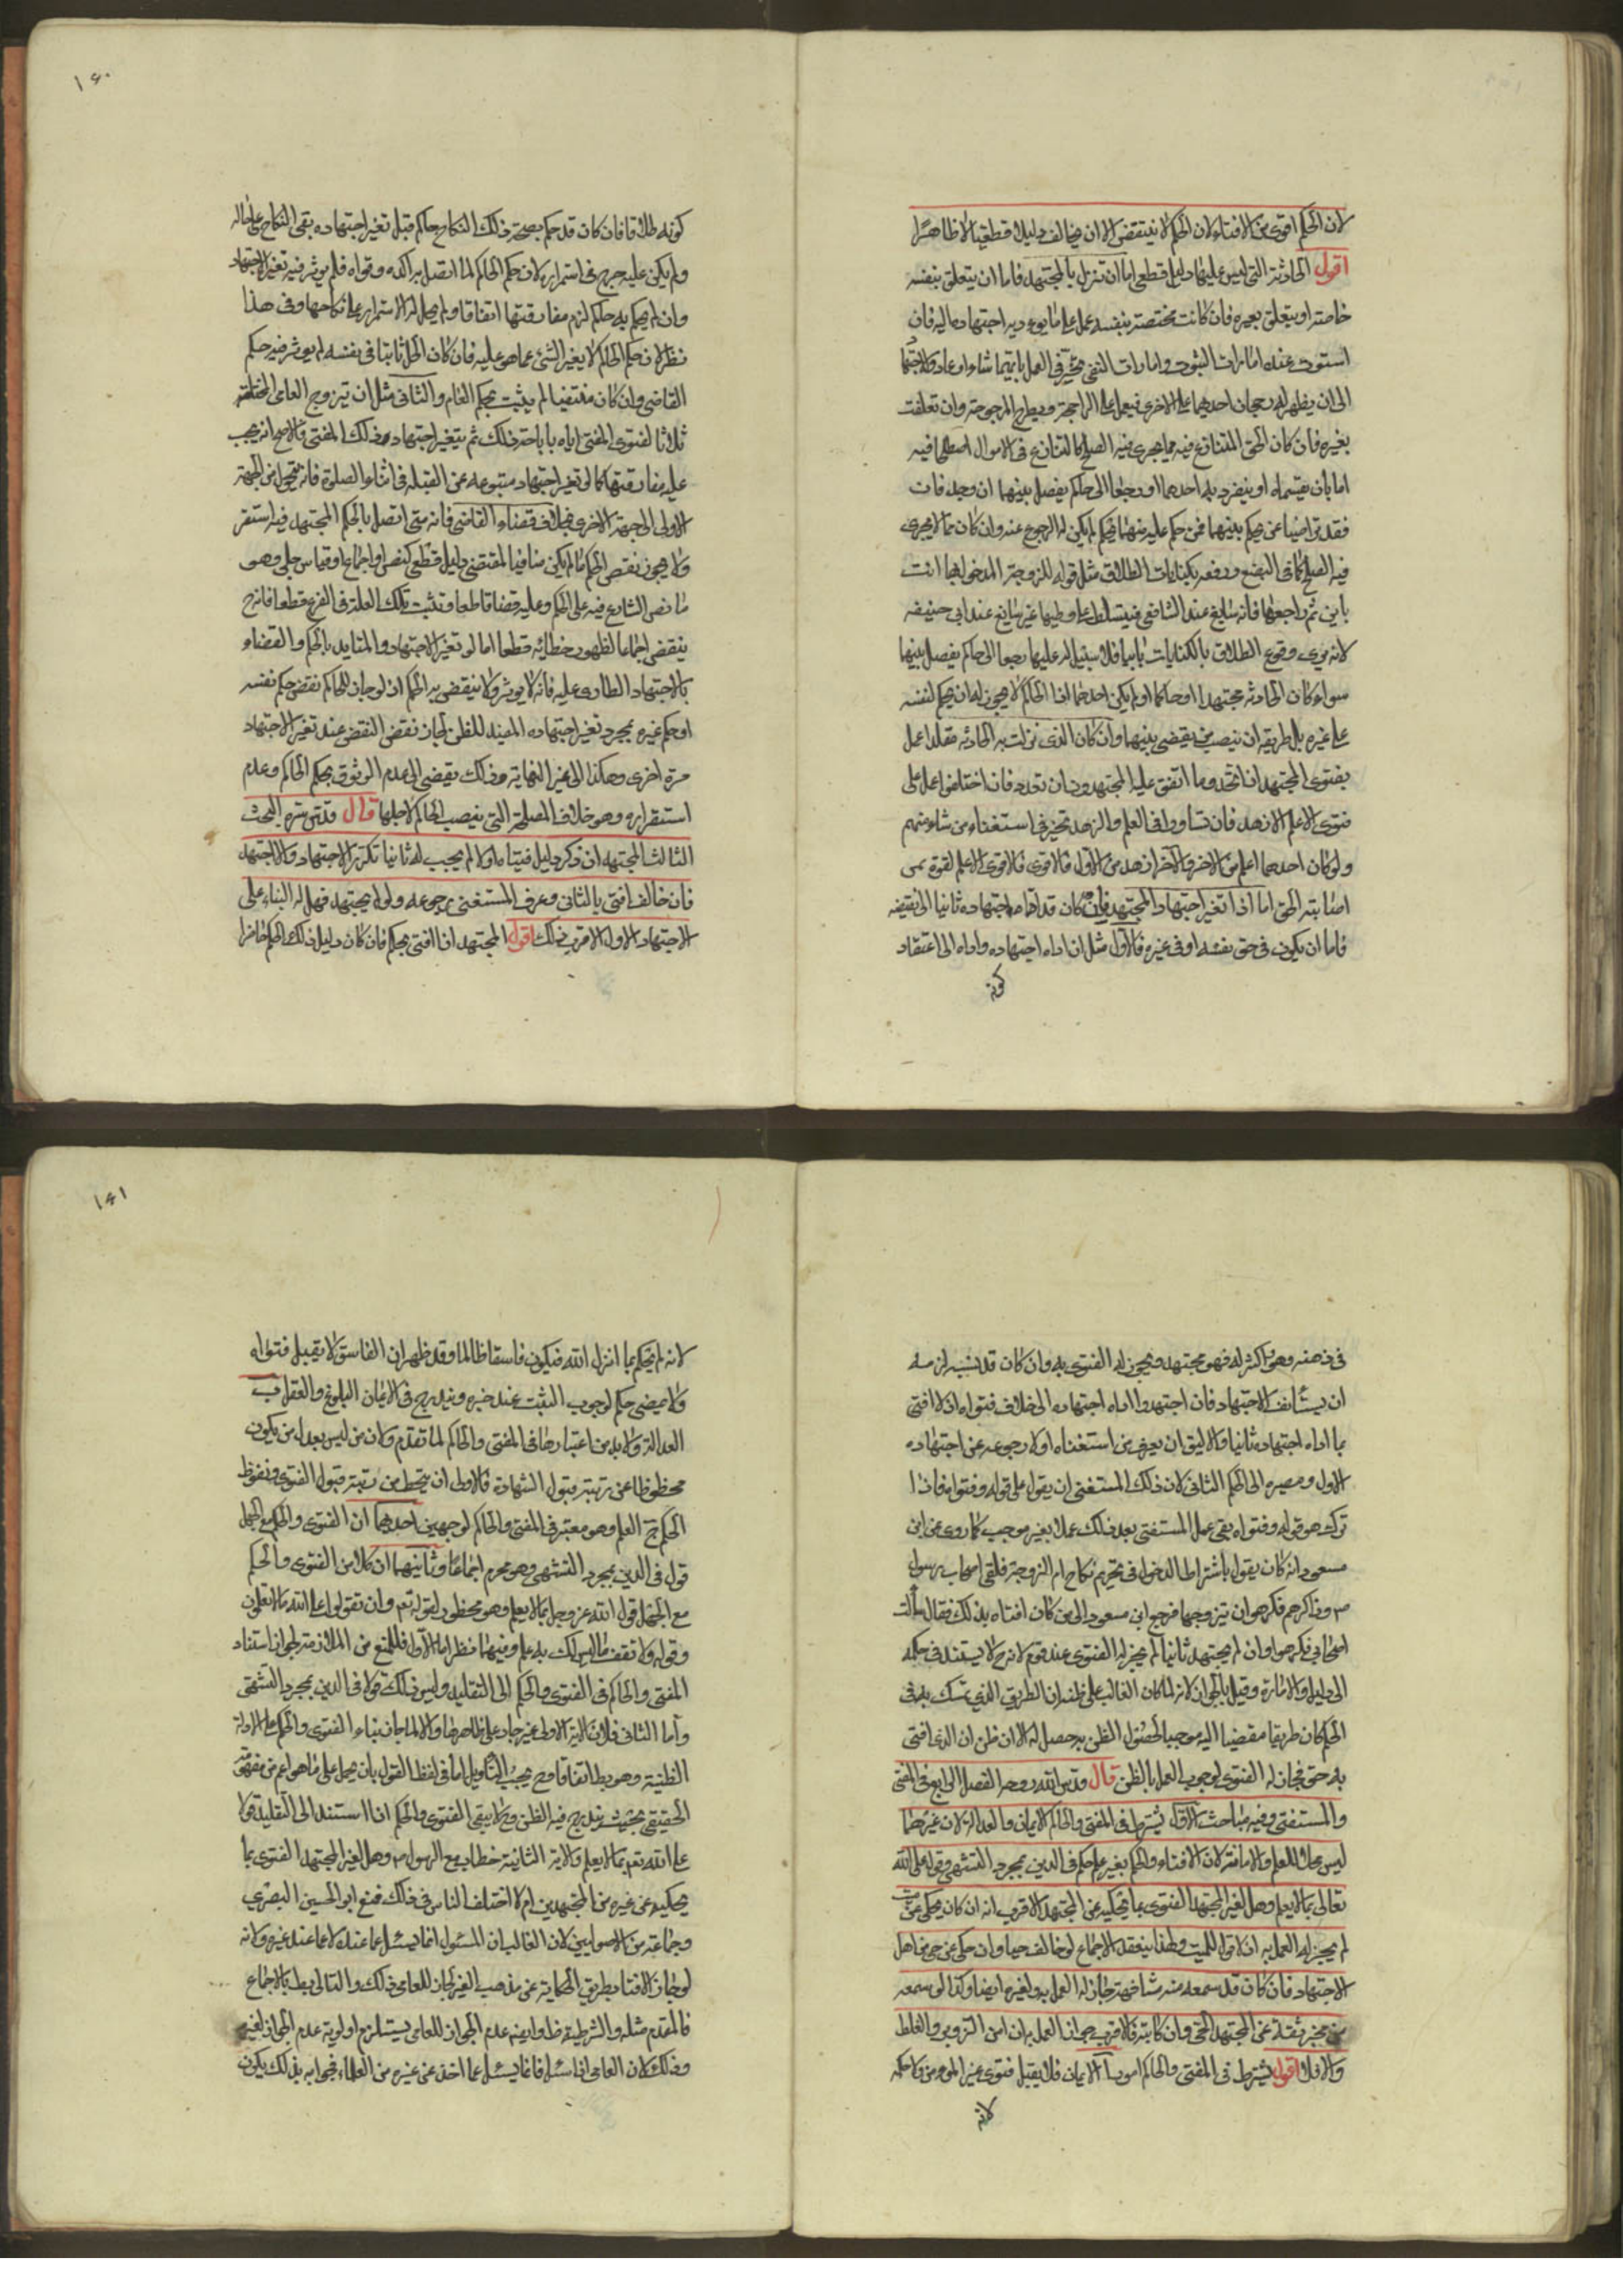 لان الحكم اقوى من الافتاء ولان الحكم لا ينتقض الا ان يخالف دليلا قطعيا لا ظاهرا
اقول الحادثة التى ليس عليها دليل قطعى اما ان تنزل بالمجتهد فاما ان يتعلق بنفسه
خاصة او يتعلق بغيره فان كانت مختصة بنفسه عمل على ما يودى اجتهاده اليه فان
استوت عنده امارات الثبوت وامارات النفى تخير فى العمل بايتهما شاء او عاد الاجتهاد
الى ان يظهر له رجحان احديهما على الاخرى فيعمل على الراجحة ويطرح المرجوحة وان تعلقت
بغيره فان كان الحق المتنازع فيه مما يجرى فيه الصلح كالتنازع فى الاموال اصطلحا فيه
اما بان يقتسماه او ينفرد به احدهما او رجعا الى حاكم يفصل بينهما ان وجد فان
فقد تراضيا بمن يحكم بينهما فمن حكم عليه منهما بحكم لم يكن له الرجوع عنه وان كان مما لا يجرى
فيه الصلح كما فى البضع ورفعه بكنايات الطلاق مثل قوله للزوجة المدخول بها انت
باين ثم راجعها فانه سايغ عند الشافعى فيتسلط على وطيها غير سايغ عند ابى حنيفه
لانه يرى وقوع الطلاق بالكنايات باينا فلا سبيل له عليها رجعا الى حاكم يفصل بينهما
سواء كان الحادثه مجتهدا او حاكما او لم يكن احدهما اذا الحاكم لا يجوز له ان يحكم لنفسه
على غيره بل طريقه ان ينصب من يقضى بينهما وان كان الذى نزلت به الحادثه مقلدا عمل
بفتوى المجتهد ان اتحد وما اتفق عليه المجتهدون ان تعدد فان اختلفوا عمل على
فتوى الاعلم الازهد فان تساووا فى العلم والزهد تخير فى استفتاء من شاء منهم
ولو كان احدهما اعلم من الاخر والاخر ازهد من الاول فالاقوى فالاقوى الاعلم لقوة
اصابته الحق اما اذا تغير اجتهاد المجتهد فان كان قد اداه اجتهاده ثانيا الى نقيضه
فاما ان يكون فى حق نفسه او فى غيره فالاول مثل ان اداه اجتهاده واداه الى اعتقاد
كونه
١٦٠
كونه طلاقا فان كان قد حكم بصحة ذلك النكاح حاكم قبل تغير اجتهاده بقى النكاح على حاله
ولم يكن عليه حرج فى استمراره لان حكم الحاكم لما اتصل به اكده وقواه فلم يوثر فيه تغير الاجتهاد
وان لم يحكم به حاكم لزم مفارقتها اتفاقا ولم يحل له الاستمرار على نكاحها وفى هذا
نظر لان حكم الحاكم لا يغير الشئ عما هو عليه فان كان الحل ثابتا فى نفسه لم يوثر فيه حكم
القاضى وان كان منتفيا لم يثبت بحكم الحاكم والثانى مثل ان تيزوج العامى المختلعة
ثلاثا لفتوى المفتى اياه باباحة ذلك ثم يتغير اجتهاد ذلك المفتى فالاصح انه يجب
عليه مفارقتها كما لو تغير اجتهاد متبوعه عن القبلة فى اثناء الصلوة فانه يتحول من الجهة
الاولى الى جهة الاخرى بخلاف قضاء القاضى فانه متى اتصل بالحكم المجتهد فيه استقر
ولا يجوز نقض الحكم ما لم يكن منافيا لمقتضى دليل قطعى كنص او اجماع او قياس جلى وهو
ما نص الشارع فيه على الحكم وعليه قضا قاطعا وتثبت تلك العلة فى الفرع قطعا فانه ح
ينقض اجماعا لظهور خطائه قطعا اما لو تغير الاجتهاد والمتايد بالحكم والقضاء
بالاجتهاد الطارى عليه فانه لا يوثر ولا ينتقض به الحكم اذ لو جاز للحاكم نقض حكم نفسه
او حكم غيره بمجرد تغير اجتهاده المفيد للظن لجاز نقض النقض عند تغير الاجتهاد
مرة اخرى وهكذا الى غير النهاية وذلك يقضى الى عدم الوثوق بحكم الحاكم وعدم
استقراره وهو خلاف المصلحة التى نصب الحاكم لاجلها قال قدس سره البحث
الثالث المجتهد ان ذكر دليل فتياه اولا لم يجب له ثانيا تكرر الاجتهاد والا اجتهد
فان خالف افتى بالثانى وعرف المستفتى برجوعه ولو لم يجتهد فهل له البناء على
الاجتهاد الاول الاقرب ذلك اقول المجتهد اذا افتى بحكم فان كان دليل ذلك الحكم حاضرا
فى ذهنه وهو ذاكر له فهو مجتهد ويجوز له الفتوى به وان كان قد نسيه لزمه
ان يستانف الاجتهاد فان اجتهد واداه اجتهاده الى خلاف فتواه اولا افتى
بما اداه اجتهاده ثانيا والاليق ان يعرف من استفتاه اولا رجوعه عن اجتهاده
الاول ومصيره الى الحكم الثانى لان ذلك المستفتى ان يقول على قوله وفتواه فاذا
ترك هو قوله وفتواه بقى عمل المستفتى بعد ذلك عملا بغير موجب كما روى عن ابن
مسعود انه كان يقول باشتراط الدخول فى تحريم نكاح ام الزوجة فلقى اصحاب رسول
ص وذاكرهم فكرهو ان يتزوجها فرجع ابن مسعود الى من كان افتاه بذلك فقال سألت
اصحابى فكرهوا وان لم يجتهد ثانيا لم يجز له الفتوى عند قوم لانه ح لا يستند فى حكمه
الى دليل ولا امارة وقيل بالجواز لانه لما كان الغالب على ظنه ان الطريق الذى تمسك به فى
الحكم كان طريقا مفضيا اليه موجبا لحصول الظن به حصل له الان ظن ان الذى افتى
به حق فجاز له الفتوى لوجوب العمل بالظن قال قدس الله روحه الفصل الرابع فى المفتى
والمستفتى وفيه مباحث الاول يشترط فى المفتى والحاكم الايمان والعدالة لان غيرهما
ليس محلا للعلم والامانة لان الافتاء والحكم بغير علم حكم فى الدين بمجرد التشهى وقول على الله
تعالى بما لا يعلم وهل لغير المجتهد الفتوى بما يحكيه عن المجتهد الاقرب انه ان كان يحكى عن ميت
لم يجز له العمل به اذ لا قول للميت ولهذا ينعقد الاجماع لو خالف حيا وان حكى عن حى من اهل
الاجتهاد فان كان قد سمعه منه مشافهة جاز له العمل به ولغيره ايضا وكذا لو سمعه
من مخبر ثقة عن المجتهد الحى وان كاتبه فالاقرب جواز العمل به ان امن التزوير والغلط
والا فلا اقول يشترط فى المفتى والحاكم امور ا الايمان فلا يقبل فتوى غير المومن ولا حكمه
لانه
١٦١
لانه لم يحكم بما انزل الله فيكون فاسقا ظالما وقد ظهر ان الفاسق لا يقبل فتواه
ولا يمضى حكم لوجوب التثبت عند خبره ويندرج فى الايمان البلوغ والعقل ب
العدالة ولا بد من اعتبارها فى المفتى والحاكم لما تقدم ولان من ليس بعدل من يكون
محطوطا عن رتبة قبول الشهادة فالاولى ان ينحط من رتبة قبول الفتوى ونفوذ
الحكم ج العلم وهو معتبر فى المفتى والحاكم لوجهين احدهما ان الفتوى والحكم مع الجهل
قول فى الدين بمجرد التشهى وهو محرم اجماعا وثانيهما ان كلا من الفتوى والحكم
مع الجهل قول الله عز وجل بما لا يعلم وهو محظور لقوله تع وان تقولوا على الله ما لا تعلمون
وقوله ولا تقف ما ليس لك به علم وفيهما نظر اما الاول فللمنع من الملازمة لجواز استناد
المفتى والحاكم فى الفتوى والحكم الى التقليد وليس ذلك قولا فى الدين بمجرد التشهى
وأما الثانى فلان الاية الاولى غير جاد على ظاهرها والا لما جاز بناء الفتوى والحكم على الادلة
الظنية وهو بط اتفاقا وح يجب التأويل اما فى لفظ القول بان يحمل على ما هو اعم من مفهومه
الحقيقى بحيث يندرج فيه الظن وح لا يبقى الفتوى والحكم اذا استند الى التقليد قولا
على الله تع بما لا يعلم والاية الثانية خطاب مع الرسول ص وهل لغير المجتهد الفتوى بما
يحكيه عن غيره من المجتهدين ام لا اختلف الناس فى ذلك فمنع ابو الحسين البصرى
وجماعة من الاصوليين لان الغالب ان المسئول انما يسئل عما عنده لا عما عند غيره ولانه
لو جاز الافتاء بطريق الحكاية عن مذهب الغير لجاز للعامى ذلك والتالى بط بالاجماع
فالمقدم مثله والشرطية ظ وايضا عدم الجواز للعامى يستلزم اولوية عدم الجواز لغيره
وذلك لان العامى اذا سئل فانما يسئل عما اخذ عن غيره من العلماء فجوابه بذلك يكون